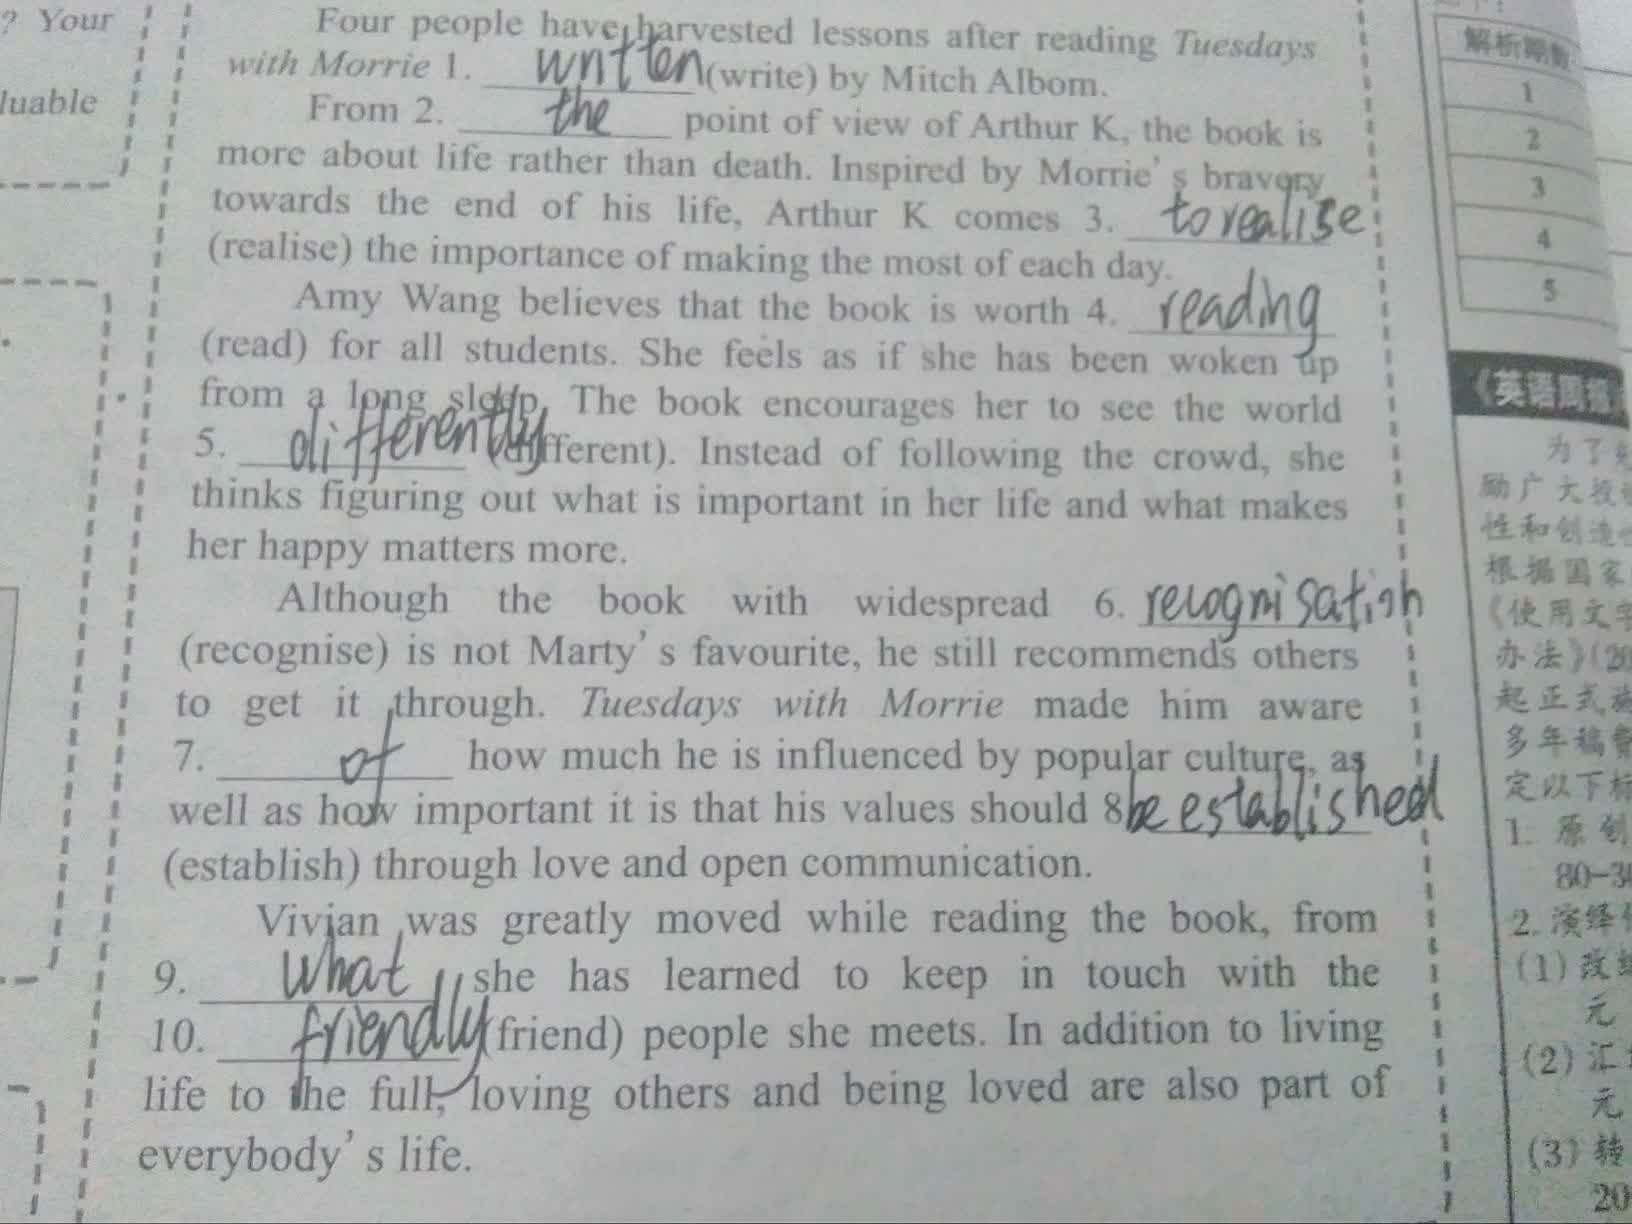 ? Your
luable
Four people have harvested lessons after reading Tuesdays
with Morrie 1. written (write) by Mitch Albom.
From 2. the point of view of Arthur K, the book is
more about life rather than death. Inspired by Morrie's bravery
towards the end of his life, Arthur K comes 3. to realise
(realise) the importance of making the most of each day.
Amy Wang believes that the book is worth 4. reading
(read) for all students. She feels as if she has been woken up
from a long sleep. The book encourages her to see the world
5. differently (different). Instead of following the crowd, she
thinks figuring out what is important in her life and what makes
her happy matters more.
Although the book with widespread 6. recognisation
(recognise) is not Marty's favourite, he still recommends others
to get it through. Tuesdays with Morrie made him aware
7. of how much he is influenced by popular culture, as
well as how important it is that his values should 8. be established
(establish) through love and open communication.
Vivian was greatly moved while reading the book, from
9. what she has learned to keep in touch with the
10. friendly (friend) people she meets. In addition to living
life to the full, loving others and being loved are also part of
everybody's life.
解析期数
1
2
3
4
5
《英语周报
为了
励广大投
性和创造
根据国家
《使用文字
办法》(20
起正式施
多年稿费
定以下标
1. 原创
80-30
2. 演绎
(1) 改
元
(2) 汇
元
(3) 转
20